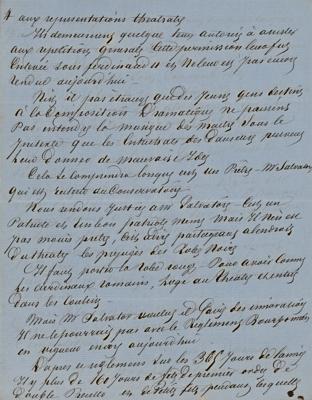 4 aux representations theatrales
Ils demeurerent quelque tems autorisé à assister
aux repetitions generales Cette permission leur fut
Enlevée sous ferdinand II et Ne leur est pas encore
rendue aujourd'hui
N'est il pas etrange que des Jeunes Gens destinés
à la Composition Dramatique ne puissent
Pas entendre la musique des maitres sous le
pretexte que les Entrechats des Danseurs peuvent
leur Donner de mauvaises Idées
Cela se Comprendra lorsque c'est un Prêtre Mr Salvator
qui est recteur du Conservatoire
Nous rendons Justice à Mr Salvator C'est un
Patriote un bon patriote meme Mais Il n'en est
pas moins pretre, C'est à dire partageant à l'endroit
Du theatre les prejugés des Robes Noires
Il faut porter la Robe rouge pour avoir comme
les cardinaux romains, Loge au theatre et entrée
dans les Coulisses
Mais Mr Salvator voulut il faire des innovations
Il ne le pourrait pas avec le Reglement Bourbonien
en vigueur encore aujourd'hui
D'apres ce reglement sur les 365 Jours de l'année
Il y a plus de 100 Jours de fêtes de premier ordre, de
Double et Petites fêtes pendant lesquelles